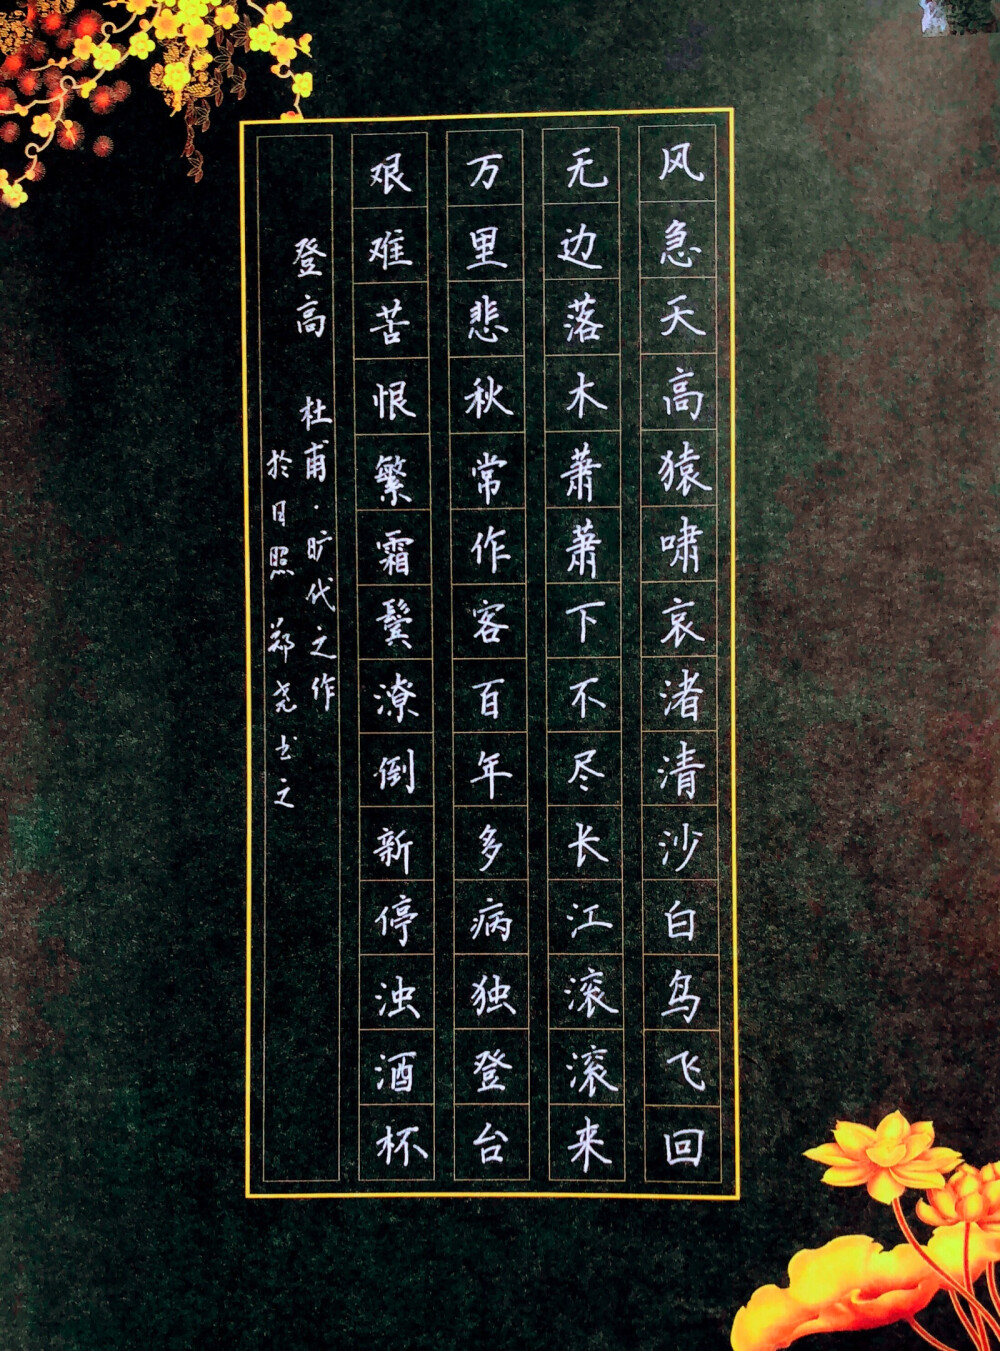 风急天高猿啸哀渚清沙白鸟飞回
无边落木萧萧下不尽长江滚滚来
万里悲秋常作客百年多病独登台
艰难苦恨繁霜鬓潦倒新停浊酒杯
登高 杜甫·旷代之作
於日照 郑尧书之